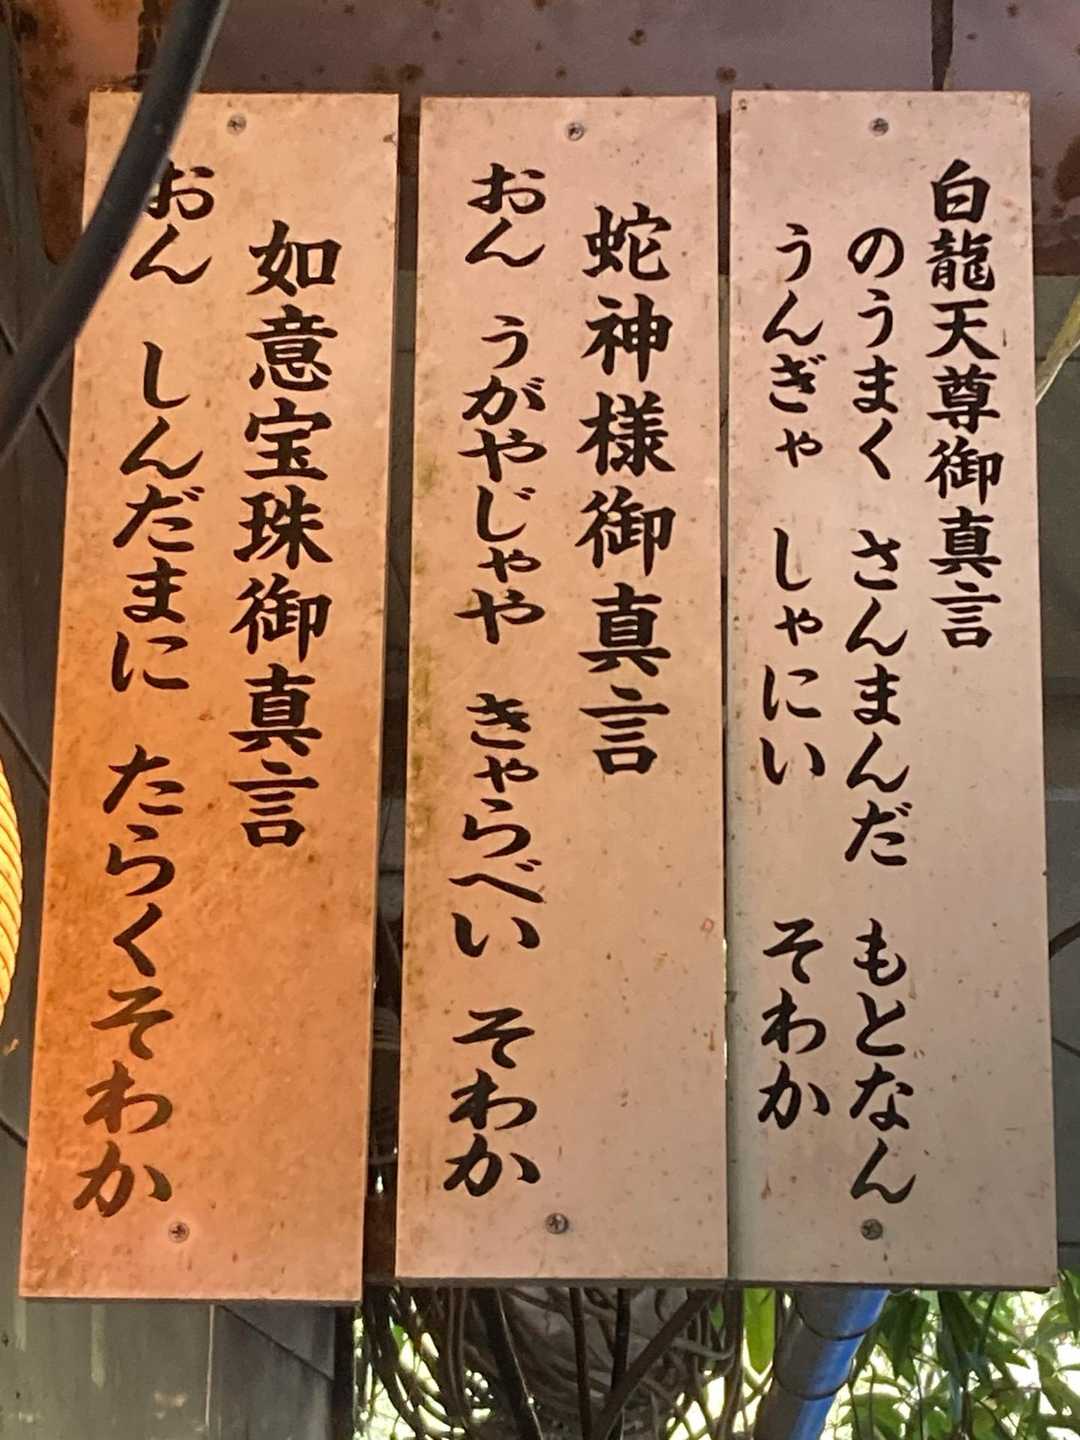 白龍天尊御真言
のうまく さんまんだ もとなん
うんぎゃ しゃにい そわか
蛇神様御真言
おん うがやじゃや きゃらべい そわか
如意宝珠御真言
おん しんだまに たらくそわか